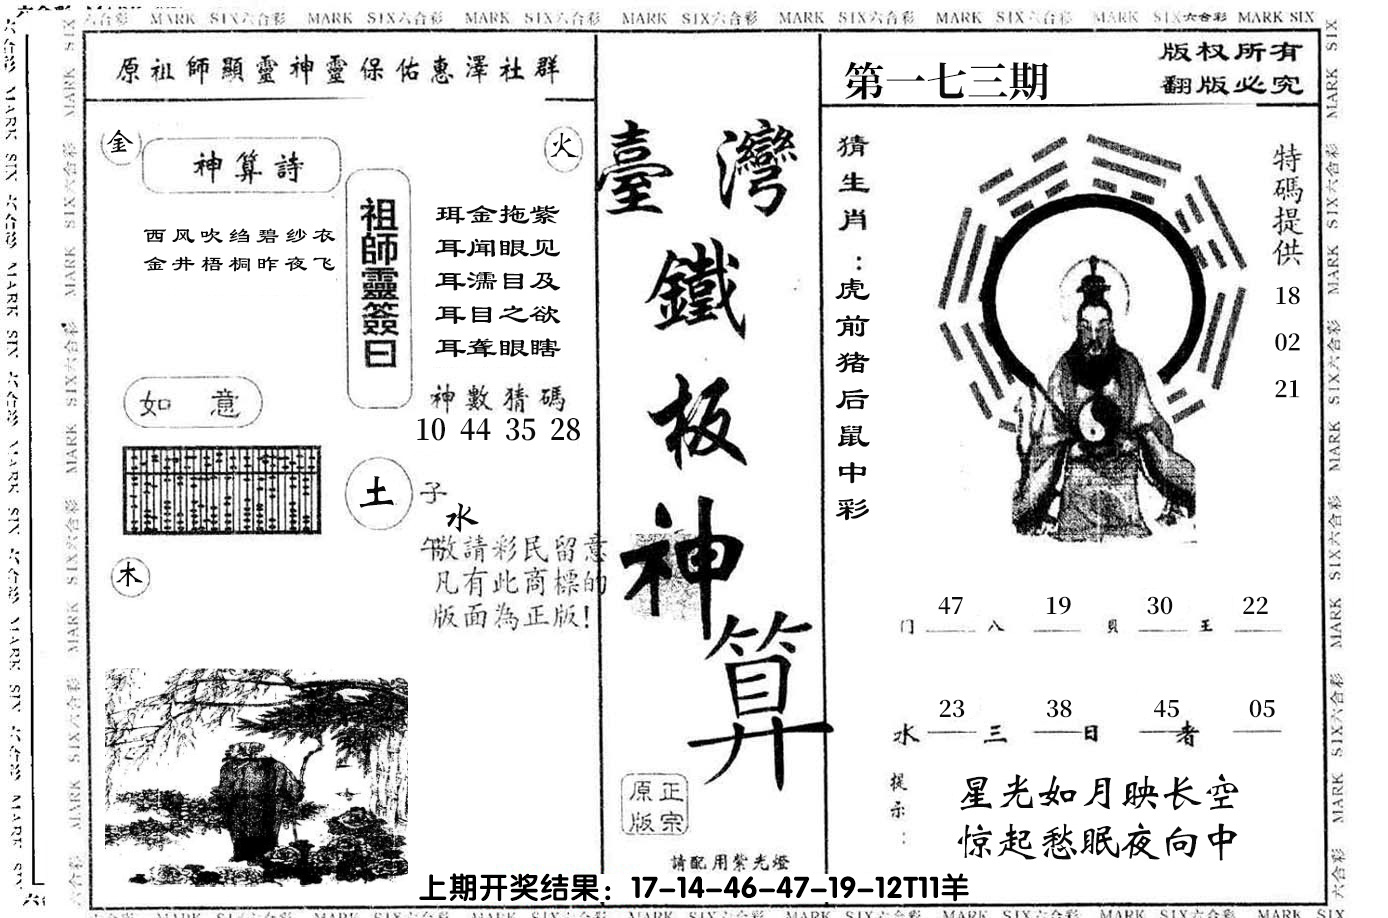 六合彩 MARK SIX六合彩 MARK SIX六合彩 MARK SIX六合彩 MARK SIX六合彩 MARK SIX六合彩 MARK SIX六合彩 MARK SIX六合彩 MARK SIX
原祖師顯靈神靈保佑惠澤社群
金
火
神算詩
西风吹绉碧纱衣
金井梧桐昨夜飞
祖師靈簽曰
珥金拖紫
耳闻眼见
耳濡目及
耳目之欲
耳聋眼瞎
如意
神數猜碼
10 44 35 28
土
子
水
午
木
敬請彩民留意
凡有此商標的
版面為正版!
臺灣
鐵
板
神
算
正宗
原版
請配用紫光燈
第一七三期
版权所有
翻版必究
猜生肖：虎前猪后鼠中彩
特碼提供
18
02
21
47 19 30 22
门 八 貝 王
23 38 45 05
水 三 日 者
提示：
星光如月映长空
惊起愁眠夜向中
上期开奖结果：17-14-46-47-19-12T11羊